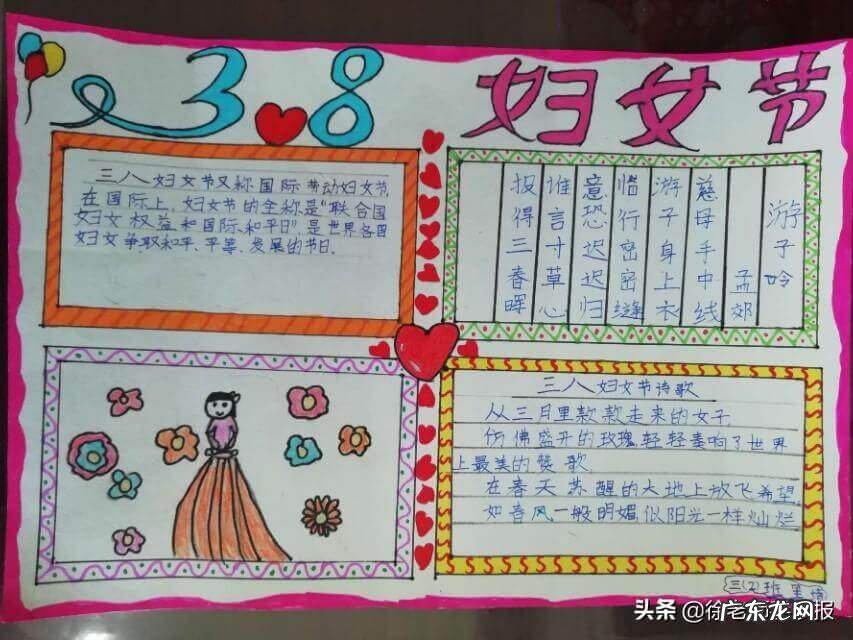 3.8 妇女节
三八妇女节又称国际劳动妇女节
在国际上,妇女节的全称是“联合国
妇女权益和国际和平日”,是世界各国
妇女争取和平、平等、发展的节日.
游子吟
孟郊
慈母手中线
游子身上衣
临行密密缝
意恐迟迟归
谁言寸草心
报得三春晖
三八妇女节诗歌
从三月里款款走来的女子
仿佛盛开的玫瑰,轻轻奏响了世界
上最美的赞歌.
在春天苏醒的大地上放飞希望,
如春风一般明媚,似阳光一样灿烂.
三(2)班
头条 @徐
广东龙网
报